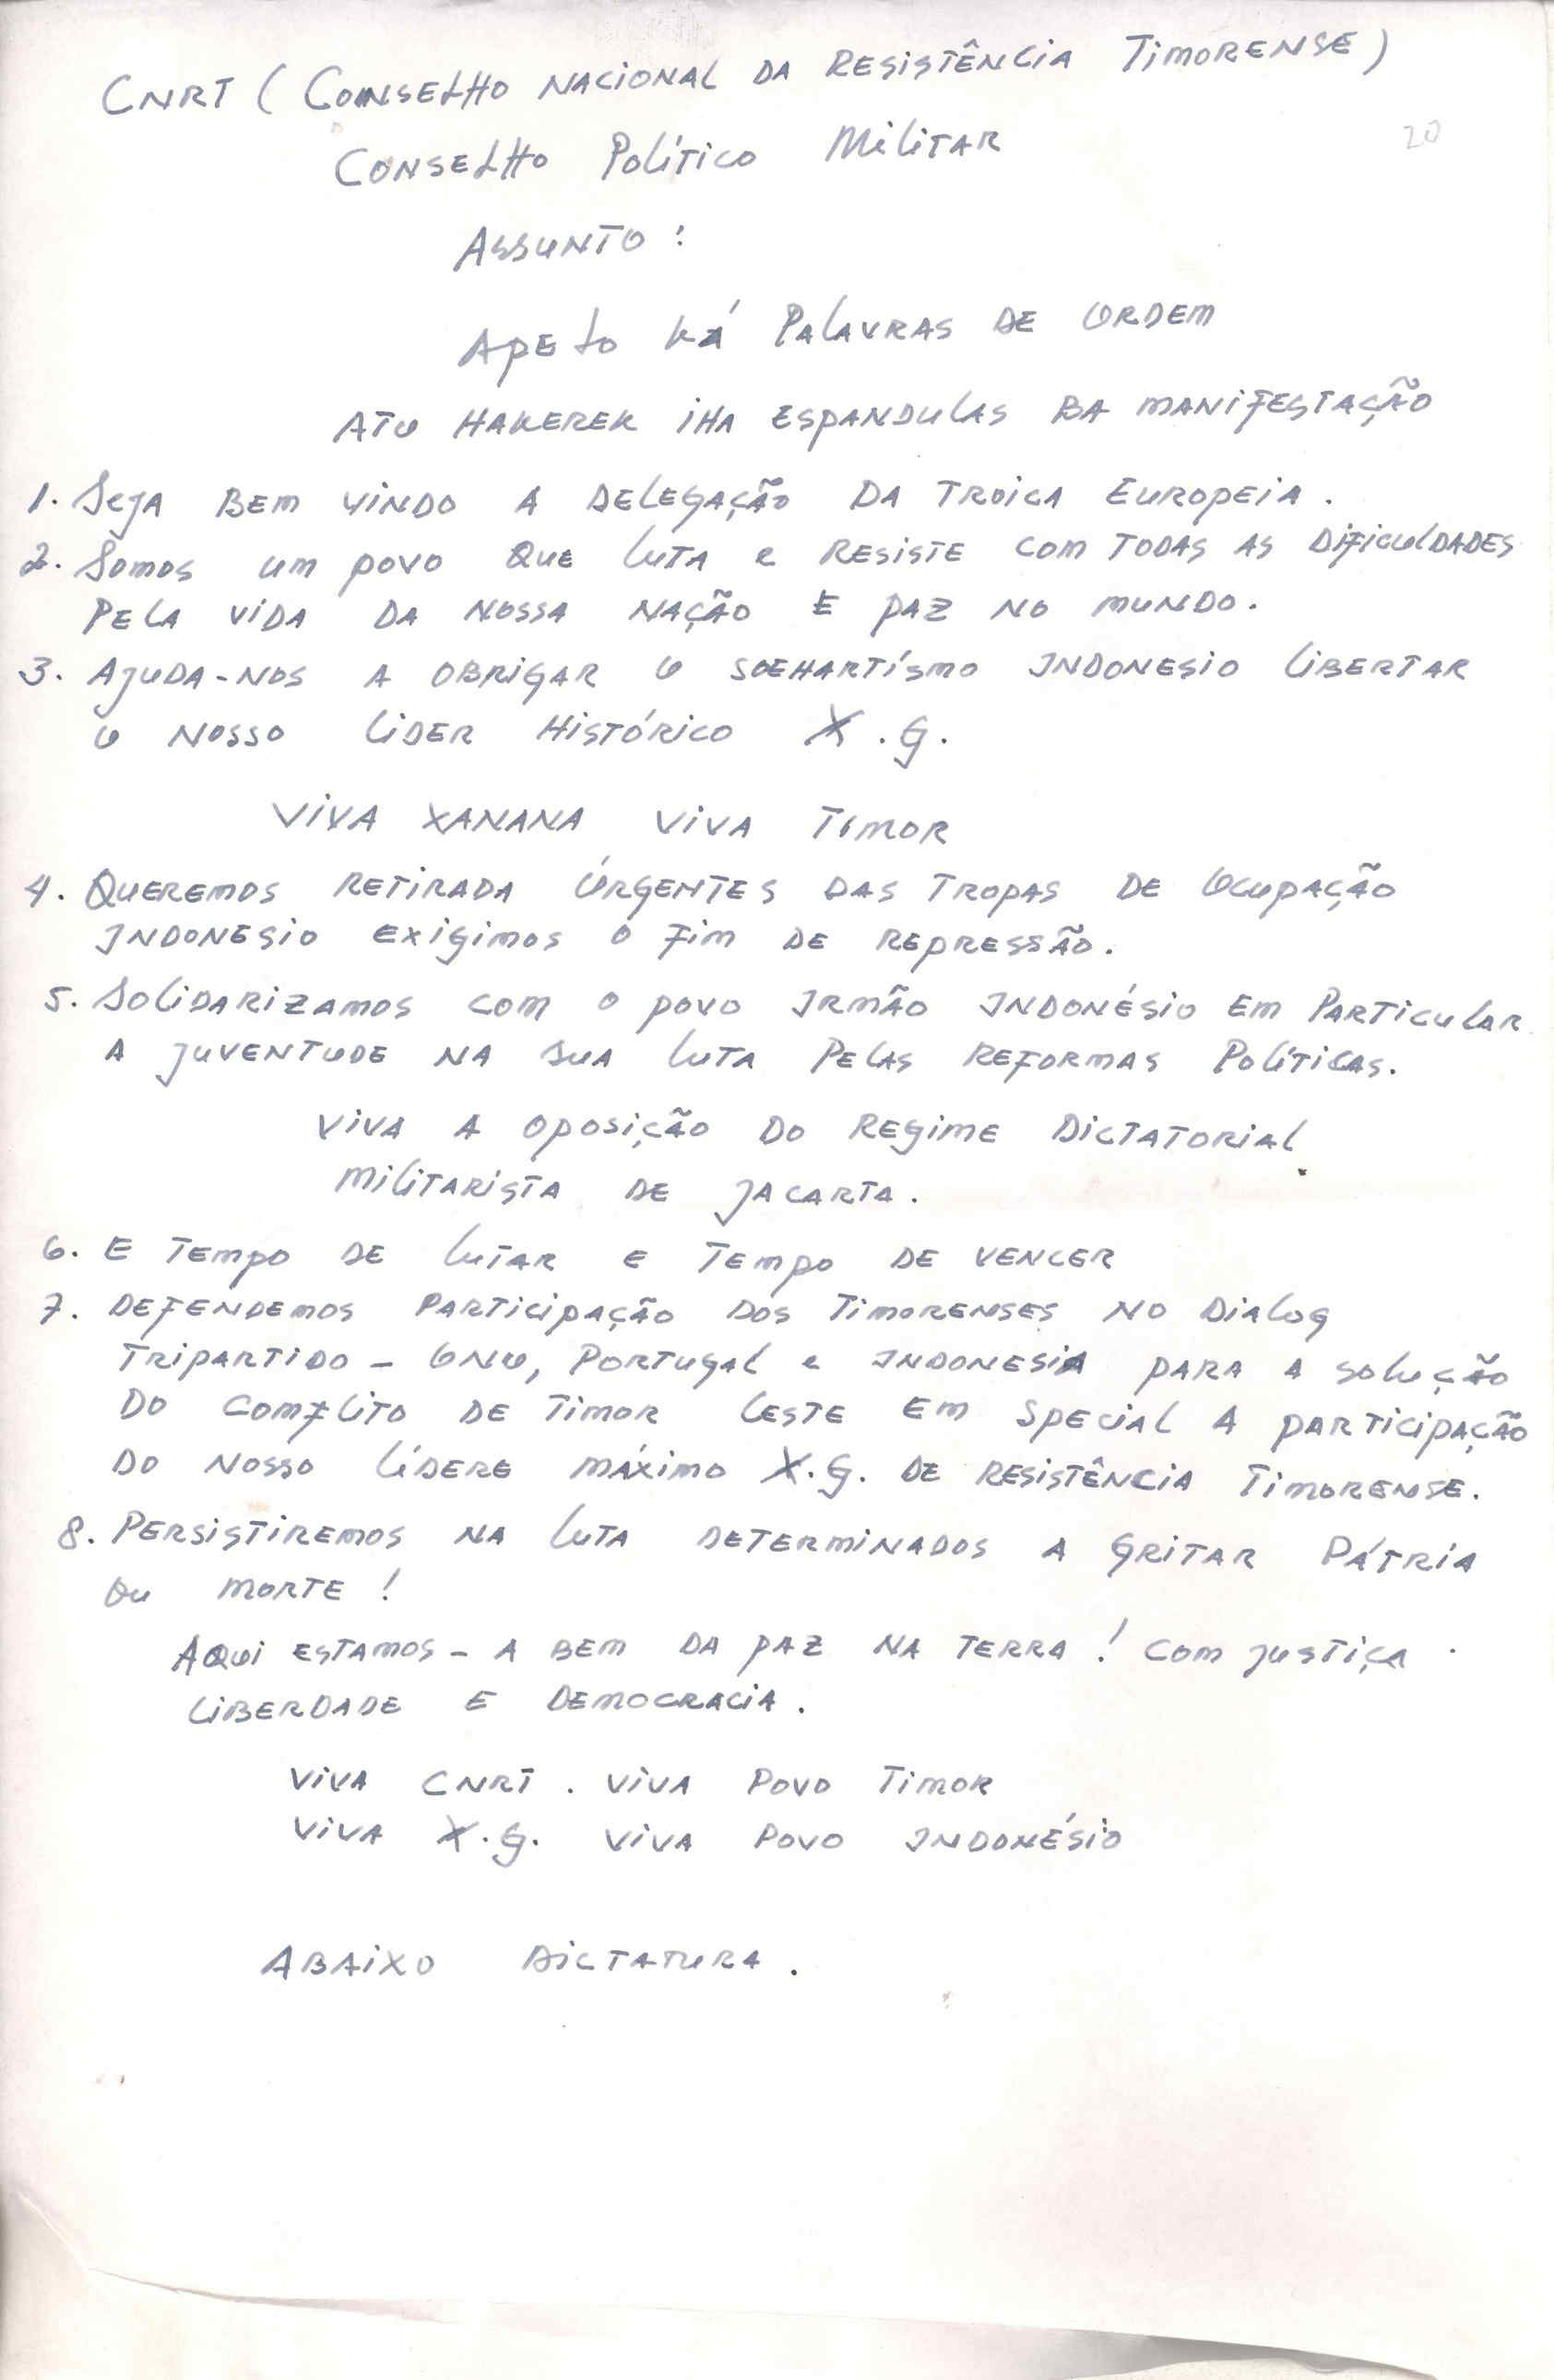 CNRT (CONSELHO NACIONAL DA RESISTÊNCIA TIMORENSE)
20
CONSELHO POLÍTICO MILITAR
ASSUNTO :
APELO ká PALAVRAS DE ORDEM
ATU HAKEREK IHA ESPANDULAS BA MANIFESTAÇÃO
1. SEJA BEM VINDO A DELEGAÇÃO DA TROICA EUROPEIA .
2. SOMOS UM POVO QUE LUTA e RESISTE COM TODAS AS DIFICULDADES
PELA VIDA DA NOSSA NAÇÃO E PAZ NO MUNDO.
3. AJUDA-NOS A OBRIGAR O SOEHARTÍSMO INDONESIO LIBERTAR
O NOSSO LIDER HISTÓRICO X.G.
VIVA XANANA VIVA TIMOR
4. QUEREMOS RETIRADA ÚRGENTES DAS TROPAS DE OCUPAÇÃO
INDONESIO EXIGIMOS O FIM DE REPRESSÃO.
5. SOLIDARIZAMOS COM O POVO IRMÃO INDONÉSIO EM PARTICULAR
A JUVENTUDE NA SUA LUTA PELAS REFORMAS POLÍTICAS.
VIVA A OPOSIÇÃO DO REGIME DICTATORIAL
MILITARISTA DE JACARTA.
6. E TEMPO DE LUTAR E TEMPO DE VENCER
7. DEFENDEMOS PARTICIPAÇÃO DOS TIMORENSES NO DIALOG
TRIPARTIDO - ONU, PORTUGAL e INDONESIA PARA A SOLUÇÃO
DO COMFLITO DE TIMOR LESTE EM SPECIAL A PARTICIPAÇÃO
DO NOSSO LÍDERE MÁXIMO X.G. DE RESISTÊNCIA TIMORENSE.
8. PERSISTIREMOS NA LUTA DETERMINADOS A GRITAR PÁTRIA
OU MORTE !
AQUI ESTAMOS - A BEM DA PAZ NA TERRA ! COM JUSTIÇA
LIBERDADE E DEMOCRACIA .
VIVA CNRT . VIVA POVO TIMOR
VIVA X.G. VIVA POVO INDONÉSIO
ABAIXO DICTATURA .